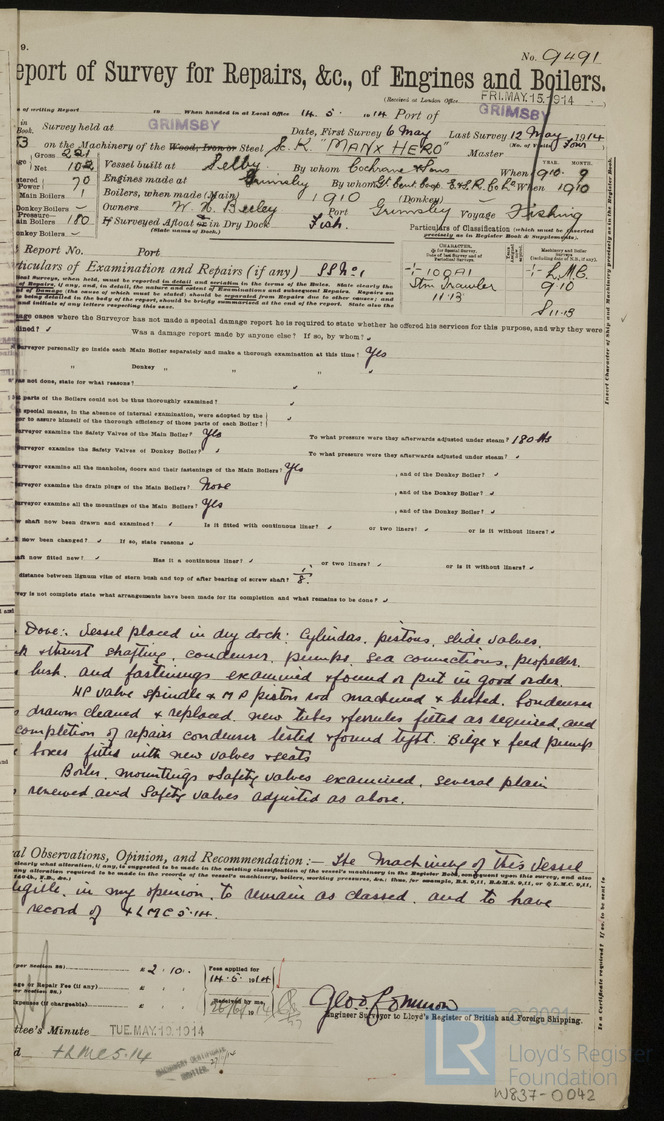 9.
No. 9491
eport of Survey for Repairs, &c., of Engines and Boilers.
(Received at London Office FRI. MAY. 15. 1914
of writing Report 19 When handed in at Local Office 14. 5. 1914 Port of GRIMSBY
in Book. Survey held at GRIMSBY Date, First Survey 6 May Last Survey 12 May 1914
on the Machinery of the Wood, Iron or Steel Sc. K "MANX HERO" Master (No. of Visits Four)
Gross 221
Net 102 Vessel built at Selby By whom Cochrane & Sons When 1910. 9
YEAR. MONTH.
Power 70 Engines made at Grimsby By whom Gt. Cent. Coop. E & S. R. Co Ld When 1910
Main Boilers 1 Boilers, when made (Main) 1910 (Donkey)
Donkey Boilers - Owners W. H. Beeley Port Grimsby Voyage Fishing
Pressure— ain Boilers 180 If Surveyed Afloat or in Dry Dock Fish.
onkey Boilers - (State name of Dock.)
Particulars of Classification (which must be inserted precisely as in Register Book & Supplements).
Report No. Port
rticulars of Examination and Repairs (if any) SS No 1
CHARACTER.
+ 100A1
Stm Trawler
11.13
+ L.M.C.
9.10
S 11.13
Insert Character of Ship and Machinery precisely as in the Register Book.
age cases where the Surveyor has not made a special damage report he is required to state whether he offered his services for this purpose, and why they were
ined? Was a damage report made by anyone else? If so, by whom?
Surveyor personally go inside each Main Boiler separately and make a thorough examination at this time? Yes
" Donkey " " "
as not done, state for what reasons?
parts of the Boilers could not be thoroughly examined?
special means, in the absence of internal examination, were adopted by the
or to assure himself of the thorough efficiency of those parts of each Boiler?
urveyor examine the Safety Valves of the Main Boiler? Yes To what pressure were they afterwards adjusted under steam? 180 lbs
urveyor examine the Safety Valves of Donkey Boiler? To what pressure were they afterwards adjusted under steam?
urveyor examine all the manholes, doors and their fastenings of the Main Boilers? Yes , and of the Donkey Boiler?
urveyor examine the drain plugs of the Main Boilers? None , and of the Donkey Boiler?
urveyor examine all the mountings of the Main Boilers? Yes , and of the Donkey Boiler?
w shaft now been drawn and examined? Is it fitted with continuous liner? or two liners? or is it without liners?
now been changed? If so, state reasons
aft now fitted new? Has it a continuous liner? or two liners? or is it without liners?
distance between lignum vitæ of stern bush and top of after bearing of screw shaft? 1/8
vey is not complete state what arrangements have been made for its completion and what remains to be done?
Done:- Vessel placed in dry dock: Cylinders, pistons, slide valves,
& thrust shafting, condenser, pumps, sea connections, propeller,
bush, and fastenings examined & found or put in good order.
HP valve spindle & M P piston rod machined & bushed. Condenser
drawn cleaned & replaced, new tubes & ferrules fitted as required, and
completion of repairs condenser tested & found tight. Bilge & feed pumps
boxes fitted with new valves & seats
Boiler, mountings & safety valves examined, several plain
renewed and Safety valves adjusted as above.
al Observations, Opinion, and Recommendation:— The Machinery of this Vessel
clearly what alteration, if any, is suggested to be made in the existing classification of the vessel's machinery in the Register Book, consequent upon this survey, and also
eligible, in my opinion, to remain as classed, and to have
record of + LMC 5.14.
£ 2. 10. Fees applied for 14. 5. 1914
age or Repair Fee (if any) £
xpenses (if chargeable) £ Received by me,
Engineer Surveyor to Lloyd's Register of British and Foreign Shipping.
ttee's Minute TUE. MAY. 19. 1914
d + LMC 5.14
MACHINERY CERTIFICATE WRITTEN
Is a Certificate required? If so, to be sent to
© 2021
LR
Lloyd's Register
Foundation
W837-0042